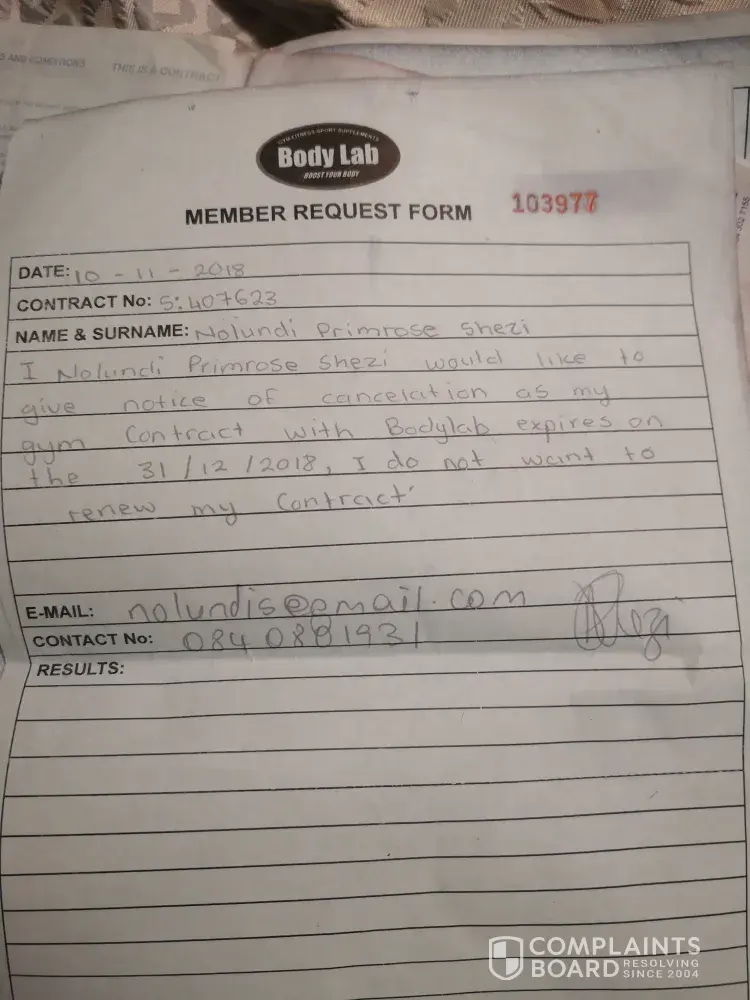 S AND CONDITIONS THIS IS A CONTRACT
GYM FITNESS SPORT SUPPLEMENTS
Body Lab
BOOST YOUR BODY
MEMBER REQUEST FORM 103977
DATE: 10 - 11 - 2018
CONTRACT No: S:407623
NAME & SURNAME: Nolundi Primrose Shezi
I Nolundi Primrose Shezi would like to
give notice of cancelation as my
gym Contract with Bodylab expires on
the 31/12/2018, I do not want to
renew my Contract
E-MAIL: nolundis@gmail.com
CONTACT No: 0840801931
RESULTS:
COMPLAINTS
BOARD RESOLVING
SINCE 2004